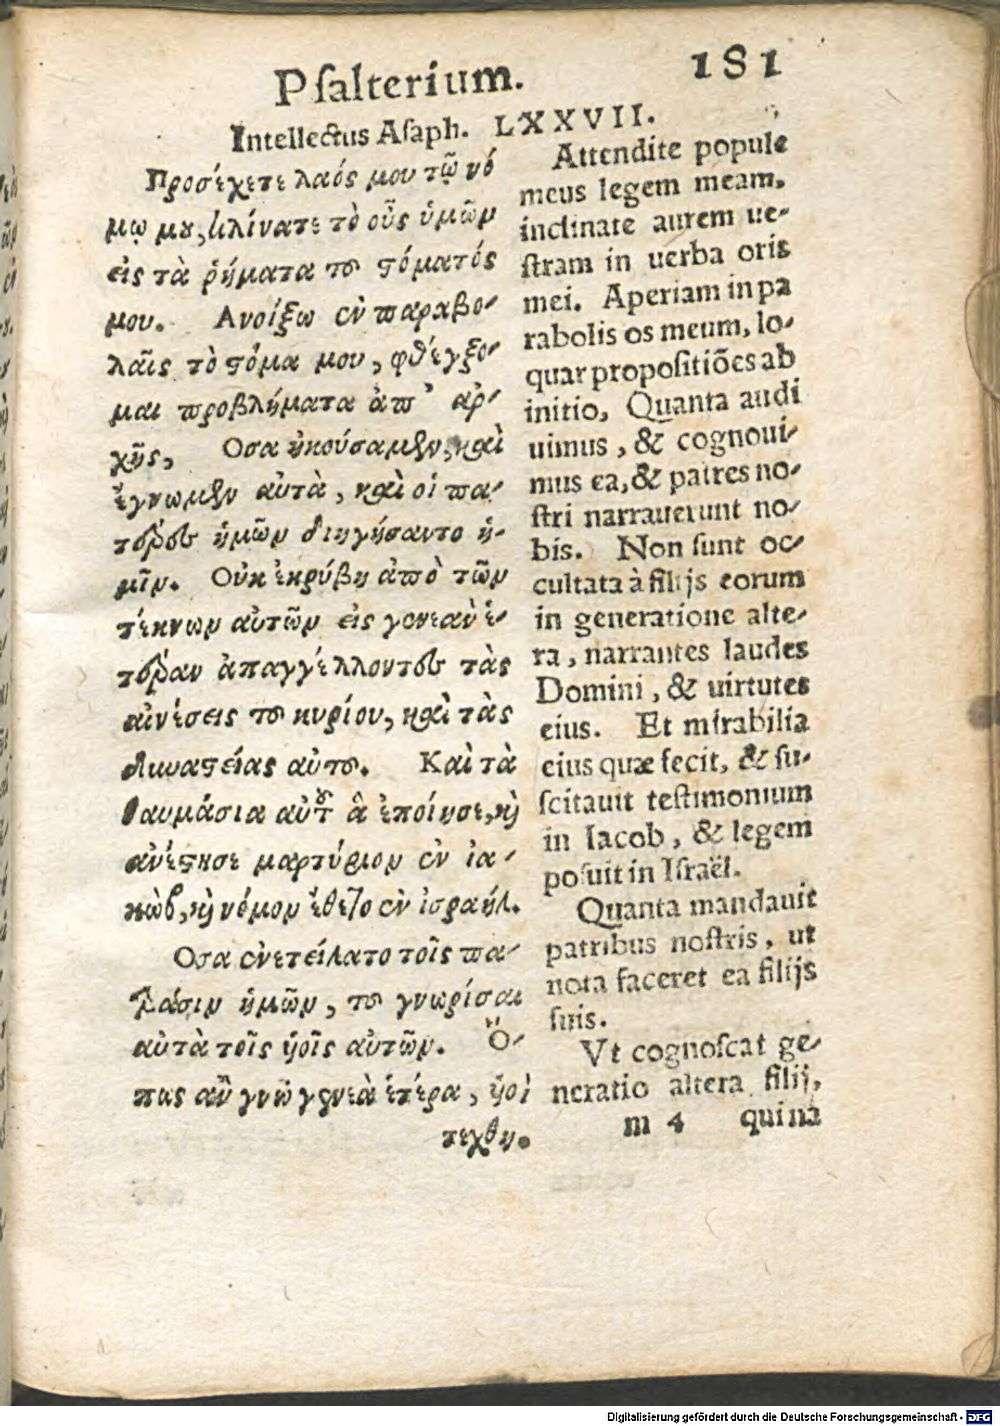 Psalterium. 181
Intellectus Asaph. LXXVII.
Προσέχετε λαός μου τῷ νό
μῳ μου, κλίνατε τὸ οὖς ὑμῶν
εἰς τὰ ῥήματα του στόματός
μου. Ανοίξω ἐν παραβο-
λαῖς τὸ στόμα μου, φθέγξο-
μαι προβλήματα ἀπ' ἀρ-
χῆς, Οσα ἠκούσαμεν, καὶ
ἔγνωμεν αὐτὰ, καὶ οἱ πα-
τέρες ἡμῶν διηγήσαντο ἡ-
μῖν. Οὐκ ἐκρύβη ἀπὸ τῶν
τέκνων αὐτῶν εἰς γενεὰν ἑ-
τέραν ἀπαγγέλλοντες τὰς
αἰνέσεις του κυρίου, καὶ τὰς
δυναστείας αὐτου. Καὶ τὰ
θαυμάσια αὐτοῦ ἃ ἐποίησε, καὶ
ἀνέστησε μαρτύριον ἐν ἰα-
κὼβ, καὶ νόμον ἔθετο ἐν ἰσραήλ.
Οσα ἐνετείλατο τοῖς πα-
τράσιν ἡμῶν, του γνωρίσαι
αὐτὰ τοῖς ὑοῖς αὐτῶν. Ὅ-
πως ἂν γνῷ γενεὰ ἑτέρα, ὑοὶ
τεχθη.
Attendite popule
meus legem meam,
inclinate aurem ue-
stram in uerba oris
mei. Aperiam in pa
rabolis os meum, lo-
quar propositiões ab
initio, Quanta audi
uimus, & cognoui-
mus ea, & patres no-
stri narrauerunt no-
bis. Non sunt oc-
cultata à filijs eorum
in generatione alte-
ra, narrantes laudes
Domini, & uirtutes
eius. Et mirabilia
eius quæ fecit, & su-
scitauit testimonium
in Iacob, & legem
posuit in Israël.
Quanta mandauit
patribus nostris, ut
nota faceret ea filijs
suis.
Vt cognoscat ge-
neratio altera filij,
m 4 qui na
Digitalisierung gefördert durch die Deutsche Forschungsgemeinschaft - DFG